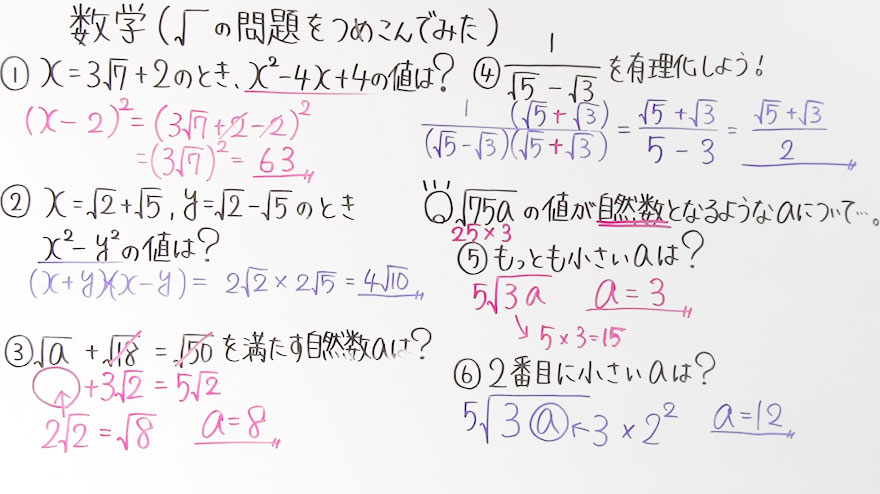 数学(√の問題をつめこんでみた)
① x=3√7+2のとき、x²-4x+4の値は?
(x-2)²=(3√7+2-2)²
=(3√7)²=63
② x=√2+√5, y=√2-√5のとき
x²-y²の値は?
(x+y)(x-y)= 2√2×2√5=4√10
③ √a+√18=√50を満たす自然数aは?
○+3√2=5√2
2√2=√8 a=8
④ 1/(√5-√3)を有理化しよう!
1(√5+√3)/(√5-√3)(√5+√3)=(√5+√3)/(5-3)=(√5+√3)/2
√75aの値が自然数となるようなaについて…。
25×3
⑤もっとも小さいaは?
5√3a a=3
5×3=15
⑥2番目に小さいaは?
5√3a←3×2² a=12